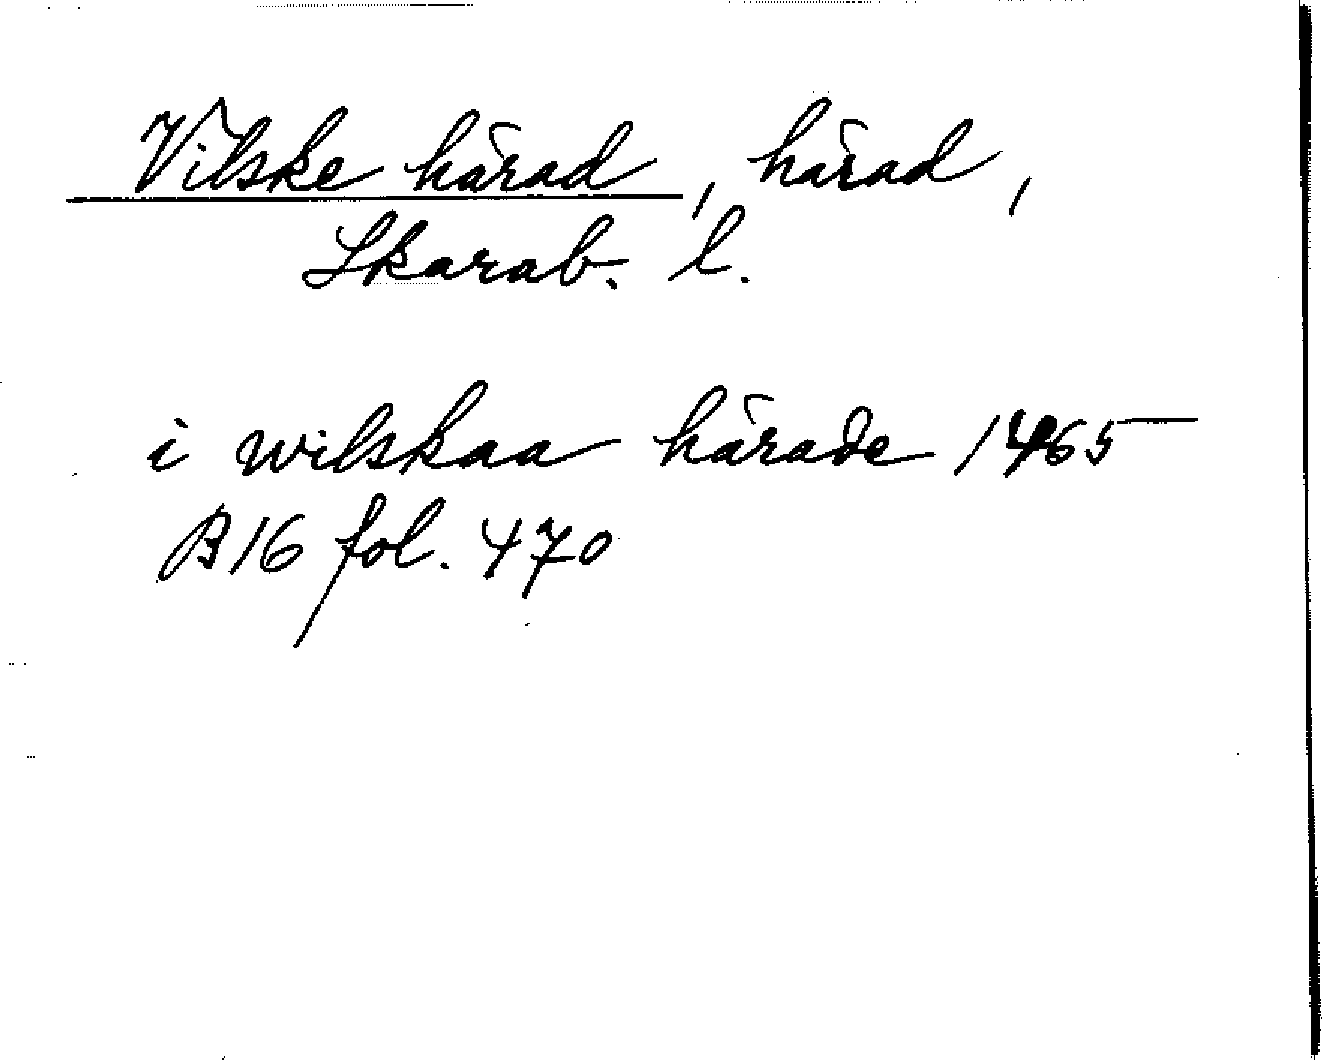 Vilske härad, härad,
Skarab. l.
i wilskaa härade 1465
B16 fol. 470